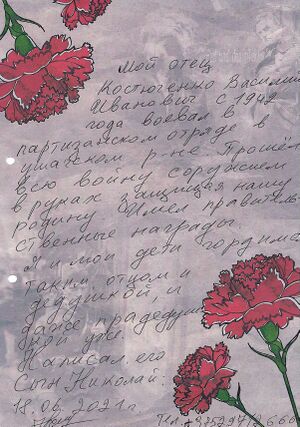 Мой отец
Костюченко Василий
Иванович с 1942
года воевал в
партизанском отряде в
ушачском р-не Прошёл
всю войну с оружием
в руках защищая нашу
родину Имел правитель-
ственные награды.
Я и мои дети гордимся
таким отцом и
дедушкой, и
даже прадедуш-
кой уже.
Написал его
Сын Николай:
18.06.2021г.
Тел.